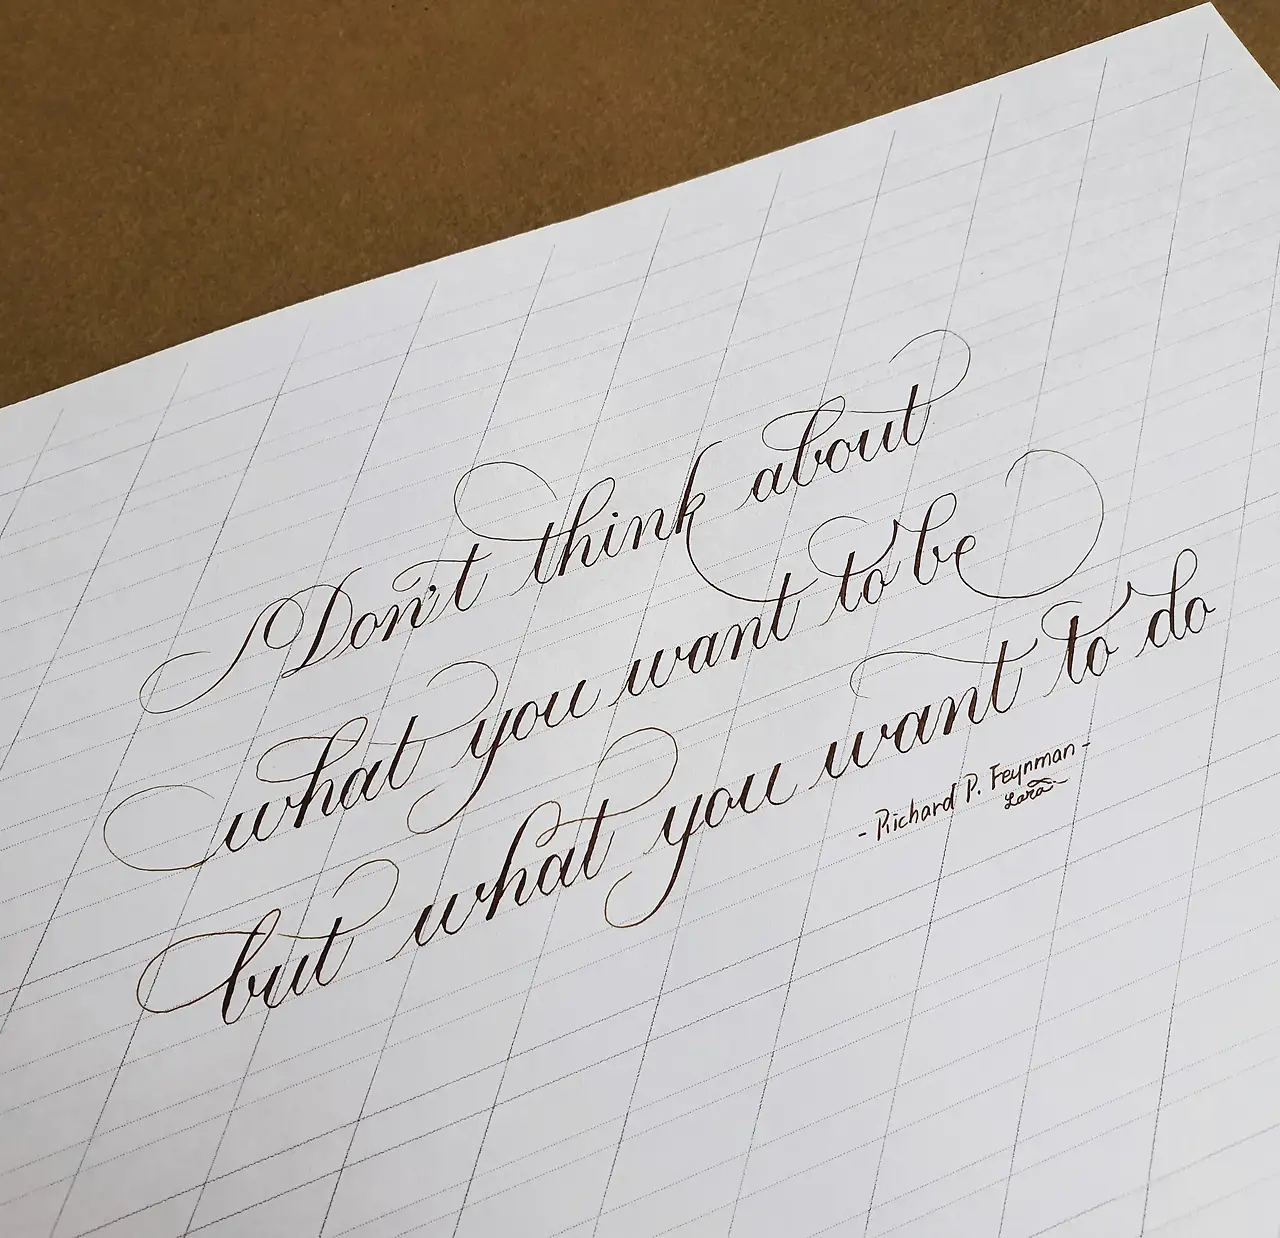 Don't think about
what you want to be
but what you want to do
- Richard P. Feynman -
Lara